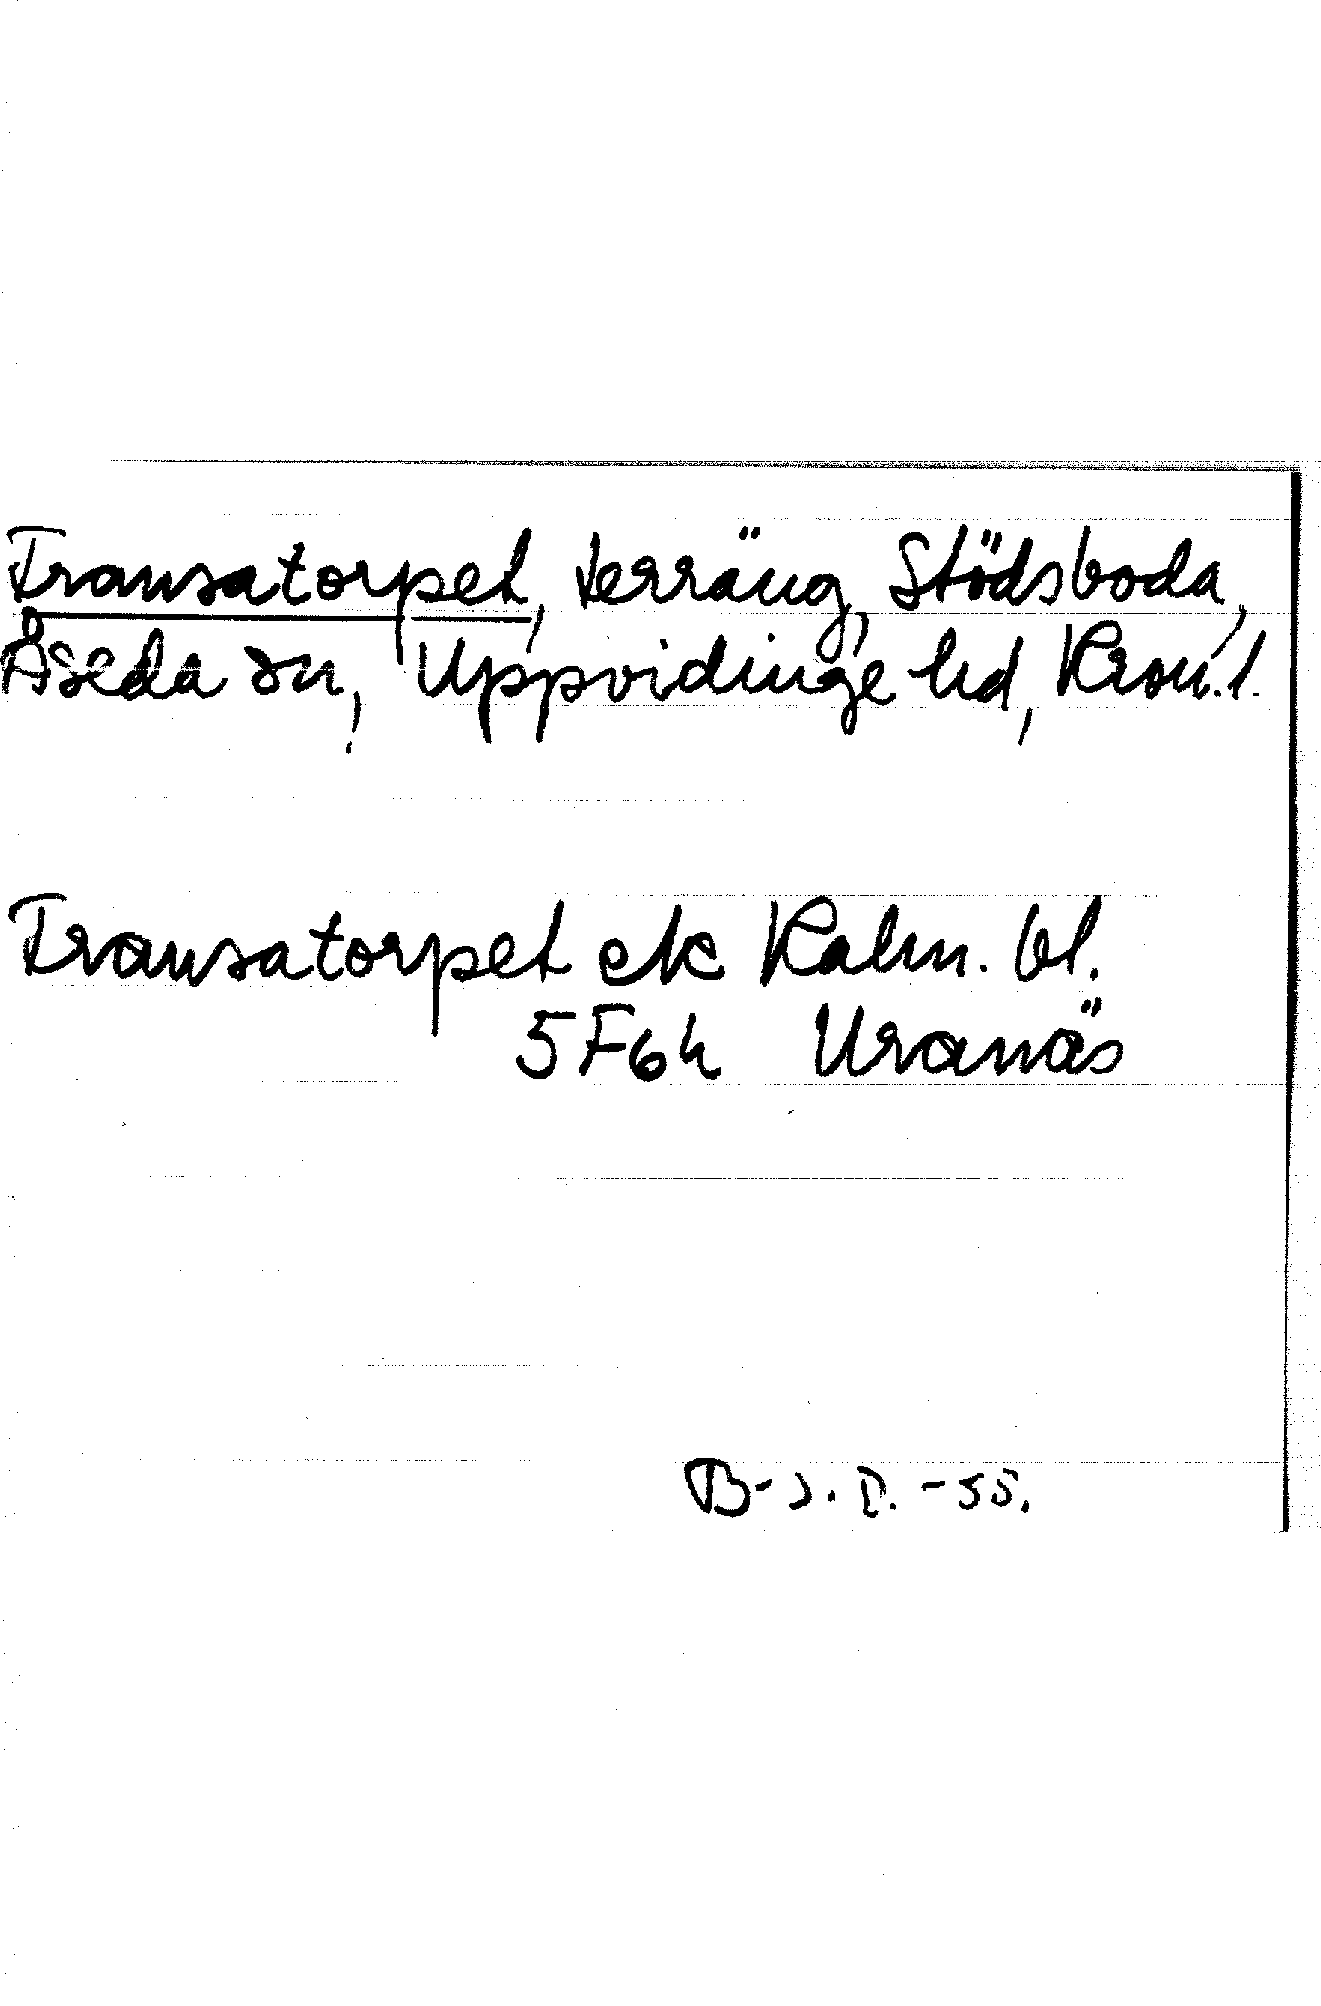 Transatorpet, terräng, Stödsboda,
Åseda sn, Uppvidinge hd, Kron.l.
Transatorpet ek Kalm. bl.
5F6h Uranäs
B-J.I.-55.